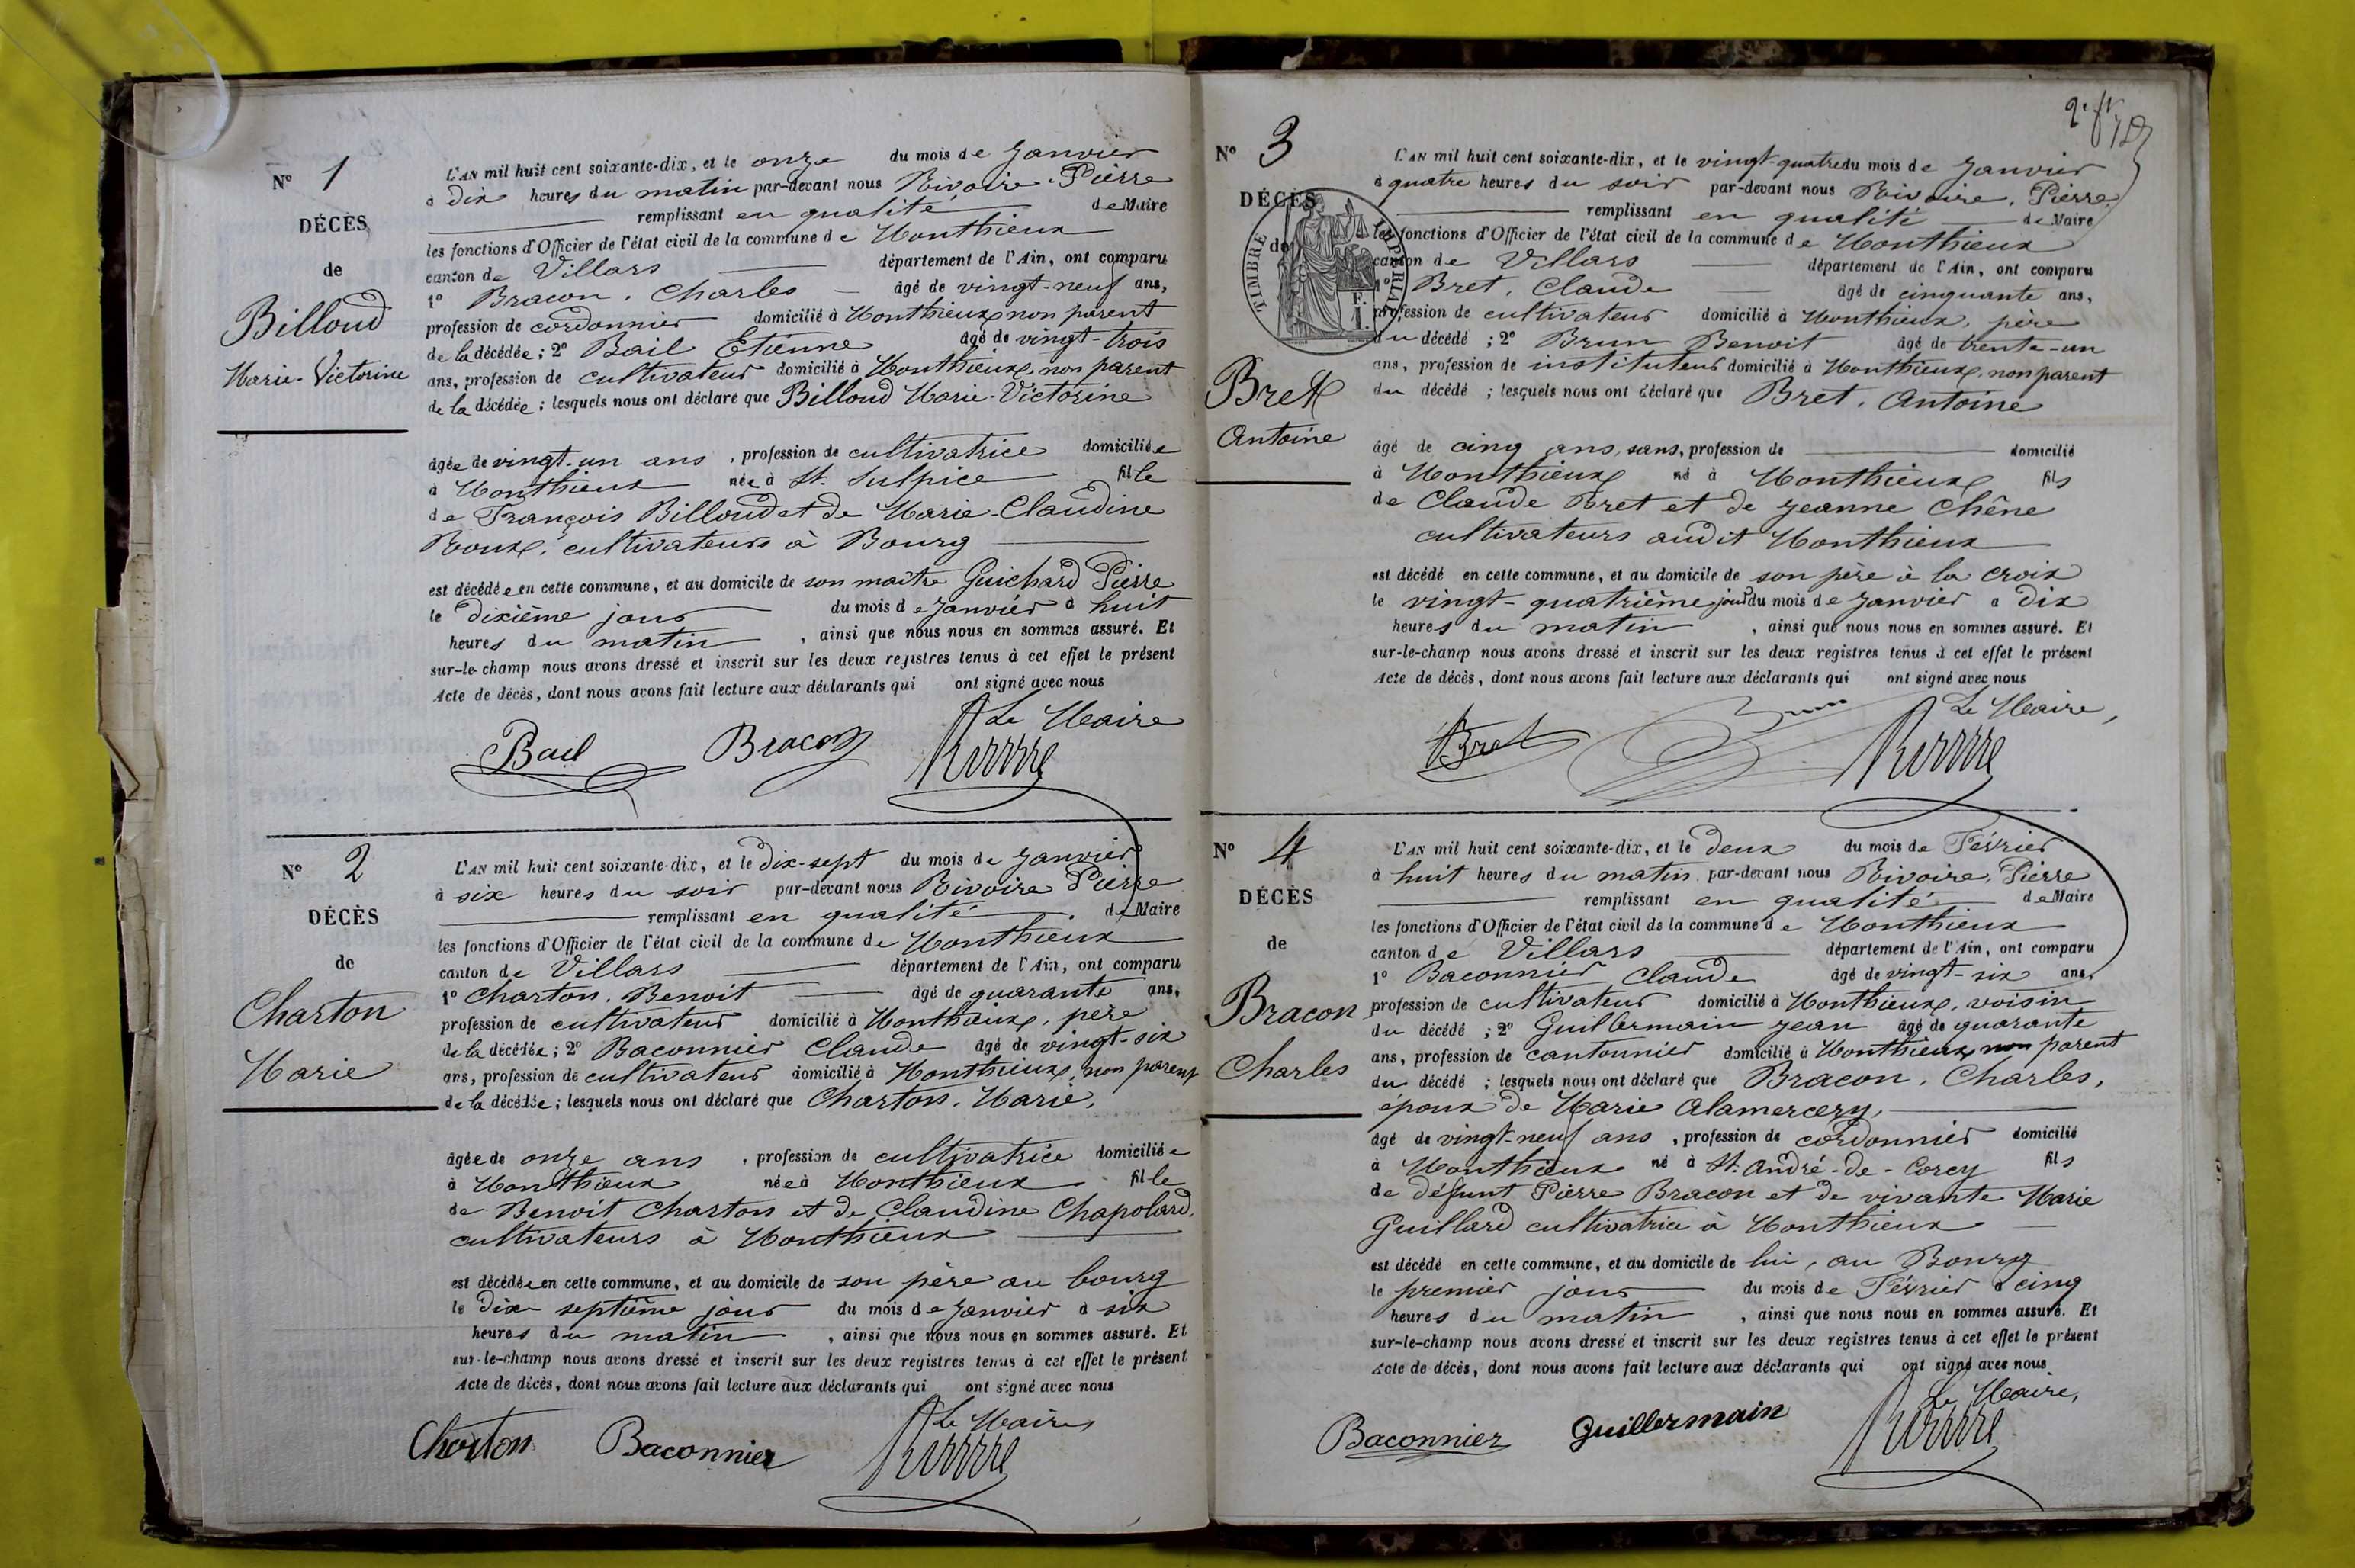 N° 1
DÉCÈS
de
Billoud
Marie-Victorine
L'AN mil huit cent soixante-dix, et le onze du mois de Janvier
à dix heures du matin par-devant nous Rivoire, Pierre
remplissant en qualité de Maire
les fonctions d'Officier de l'état civil de la commune de Monthieux
canton de Villars département de l'Ain, ont comparu
1° Bracon, Charles âgé de vingt-neuf ans,
profession de cordonnier domicilié à Monthieux, non parent
de la décédée ; 2° Bail Etienne âgé de vingt-trois
ans, profession de cultivateur domicilié à Monthieux, non parent
de la décédée ; lesquels nous ont déclaré que Billoud Marie-Victorine
âgée de vingt-un ans, profession de cultivatrice domiciliée
à Monthieux née à St. Sulpice fille
de François Billoud et de Marie-Claudine
Roux, cultivateurs à Bourg
est décédée en cette commune, et au domicile de son maître Guichard Pierre
le dixième jour du mois de Janvier à huit
heures du matin, ainsi que nous nous en sommes assuré. Et
sur-le-champ nous avons dressé et inscrit sur les deux registres tenus à cet effet le présent
Acte de décès, dont nous avons fait lecture aux déclarants qui ont signé avec nous
Le Maire
Bail Bracon Rivoire
N° 2
DÉCÈS
de
Charton
Marie
L'AN mil huit cent soixante-dix, et le dix-sept du mois de Janvier
à six heures du soir par-devant nous Rivoire Pierre
remplissant en qualité de Maire
les fonctions d'Officier de l'état civil de la commune de Monthieux
canton de Villars département de l'Ain, ont comparu
1° Charton, Benoit âgé de quarante ans,
profession de cultivateur domicilié à Monthieux, père
de la décédée ; 2° Baconnier Claude âgé de vingt-six
ans, profession de cultivateur domicilié à Monthieux, non parent
de la décédée ; lesquels nous ont déclaré que Charton, Marie,
âgée de onze ans, profession de cultivatrice domiciliée
à Monthieux née à Monthieux fille
de Benoit Charton et de Claudine Chapolard,
cultivateurs à Monthieux
est décédée en cette commune, et au domicile de son père au bourg
le dix-septième jour du mois de Janvier à six
heures du matin, ainsi que nous nous en sommes assuré. Et
sur-le-champ nous avons dressé et inscrit sur les deux registres tenus à cet effet le présent
Acte de décès, dont nous avons fait lecture aux déclarants qui ont signé avec nous
Le Maire
Charton Baconnier Rivoire
N° 3
DÉCÈS
de
TIMBRE IMPÉRIAL
Bret
Antoine
L'AN mil huit cent soixante-dix, et le vingt-quatre du mois de Janvier
à quatre heures du soir par-devant nous Rivoire, Pierre
remplissant en qualité de Maire
les fonctions d'Officier de l'état civil de la commune de Monthieux
canton de Villars département de l'Ain, ont comparu
1° Bret, Claude âgé de cinquante ans,
profession de cultivateur domicilié à Monthieux, père
du décédé ; 2° Brun Benoit âgé de trente-un
ans, profession de instituteur domicilié à Monthieux, non parent
du décédé ; lesquels nous ont déclaré que Bret, Antoine
âgé de cinq ans, sans, profession de domicilié
à Monthieux né à Monthieux fils
de Claude Bret et de Jeanne Chêne
cultivateurs audit Monthieux
est décédé en cette commune, et au domicile de son père à la Croix
le vingt-quatrième jour du mois de Janvier à dix
heures du matin, ainsi que nous nous en sommes assuré. Et
sur-le-champ nous avons dressé et inscrit sur les deux registres tenus à cet effet le présent
Acte de décès, dont nous avons fait lecture aux déclarants qui ont signé avec nous
Le Maire,
Bret Brun Rivoire
N° 4
DÉCÈS
de
Bracon
Charles
L'AN mil huit cent soixante-dix, et le deux du mois de Février
à huit heures du matin par-devant nous Rivoire, Pierre
remplissant en qualité de Maire
les fonctions d'Officier de l'état civil de la commune de Monthieux
canton de Villars département de l'Ain, ont comparu
1° Baconnier Claude âgé de vingt-six ans,
profession de cultivateur domicilié à Monthieux, voisin
du décédé ; 2° Guillermain Jean âgé de quarante
ans, profession de cantonnier domicilié à Monthieux, non parent
du décédé ; lesquels nous ont déclaré que Bracon, Charles,
époux de Marie Alamercery,
âgé de vingt-neuf ans, profession de cordonnier domicilié
à Monthieux né à St. André-de-Corcy fils
de défunt Pierre Bracon et de vivante Marie
Guillard cultivatrice à Monthieux
est décédé en cette commune, et au domicile de lui, au Bourg
le premier jour du mois de Février à cinq
heures du matin, ainsi que nous nous en sommes assuré. Et
sur-le-champ nous avons dressé et inscrit sur les deux registres tenus à cet effet le présent
Acte de décès, dont nous avons fait lecture aux déclarants qui ont signé avec nous
Le Maire,
Baconnier Guillermain Rivoire